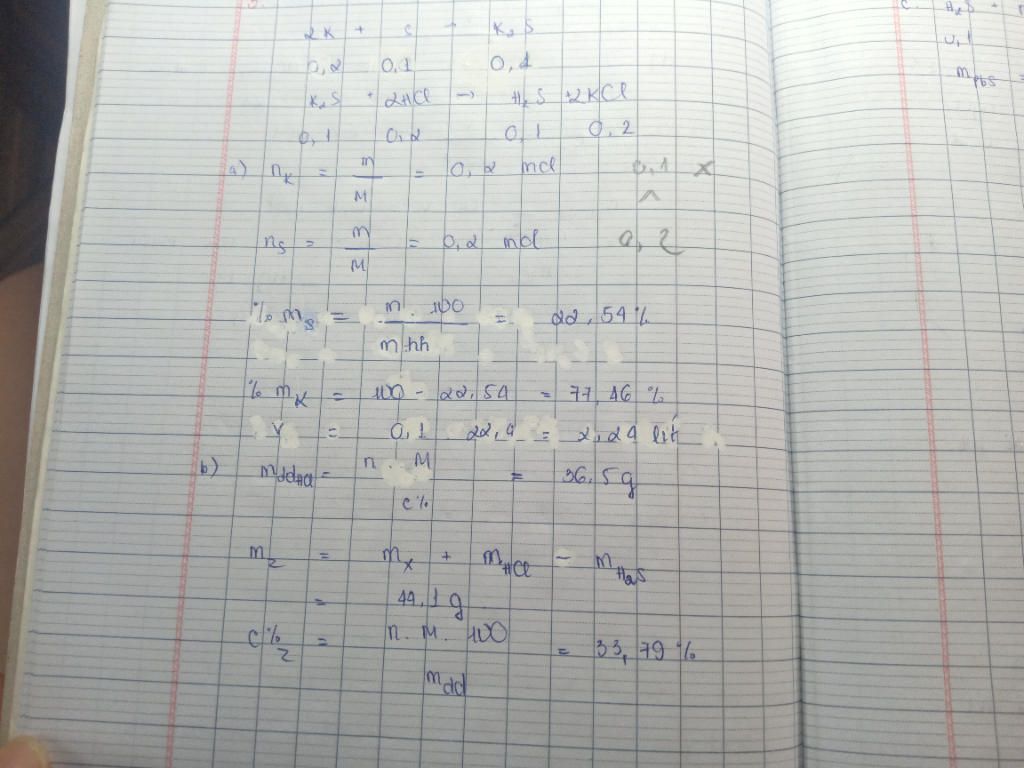 2K + S → K₂S
0,2 0,1 0,1
K₂S + 2HCl → H₂S + 2KCl
0,1 0,2 0,1 0,2
a) nK = m/M = 0,2 mol 0,1 x
^
nS = m/M = 0,2 mol 0,2
% mS = m . 100 / m hh = 22,54 %
% mK = 100 - 22,54 = 77,46 %
V = 0,1 . 22,4 = 2,24 lít
b) mddHCl = n . M / C% = 36,5 g
mZ = mX + mHCl - mH₂S
= 44,1 g
C% Z = n. M. 100 / mdd = 33,79 %
C. H₂S +
0,1
mPbS =